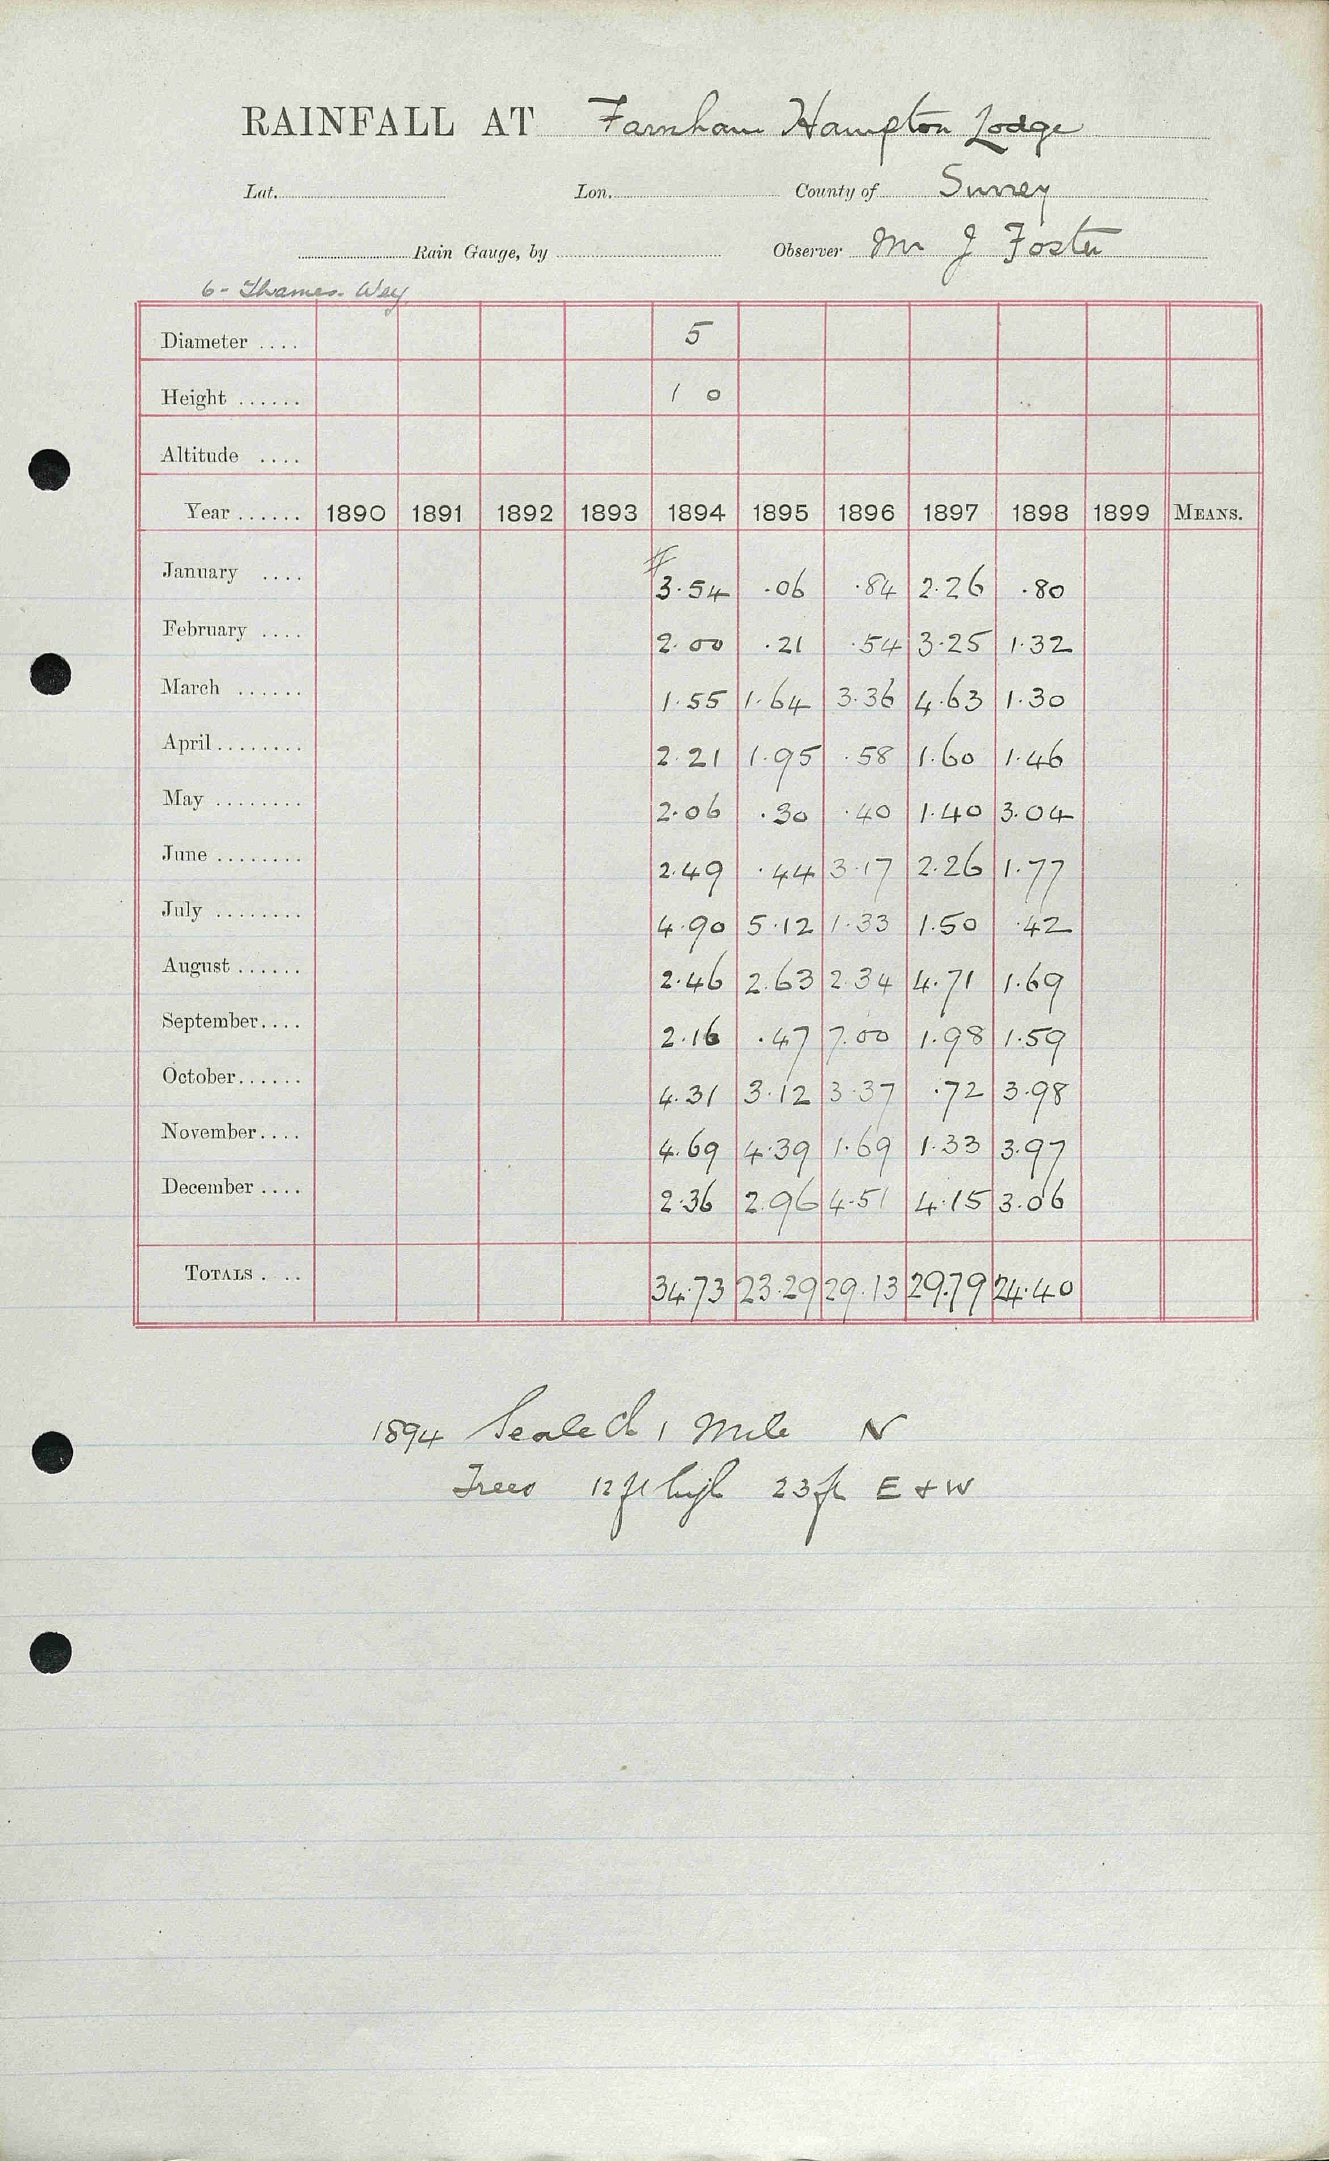 RAINFALL AT Farnham Hampton Lodge
Lat. Lon. County of Surrey
Rain Gauge, by Observer Mr J Foster
6- Thames- Wey
Diameter .... 5
Height ...... 1 0
Altitude ....
Year ...... 1890 1891 1892 1893 1894 1895 1896 1897 1898 1899 MEANS.
January .... 3.54 .06 .84 2.26 .80
February .... 2.00 .21 .54 3.25 1.32
March ...... 1.55 1.64 3.36 4.63 1.30
April ........ 2.21 1.95 .58 1.60 1.46
May ........ 2.06 .30 .40 1.40 3.04
June ........ 2.49 .44 3.17 2.26 1.77
July ........ 4.90 5.12 1.33 1.50 .42
August ...... 2.46 2.63 2.34 4.71 1.69
September.... 2.16 .47 7.00 1.98 1.59
October...... 4.31 3.12 3.37 .72 3.98
November.... 4.69 4.39 1.69 1.33 3.97
December .... 2.36 2.96 4.51 4.15 3.06
TOTALS . .. 34.73 23.29 29.13 29.79 24.40
1894 Seale Ch 1 Mile N
Trees 12 ft high 23 ft E + W